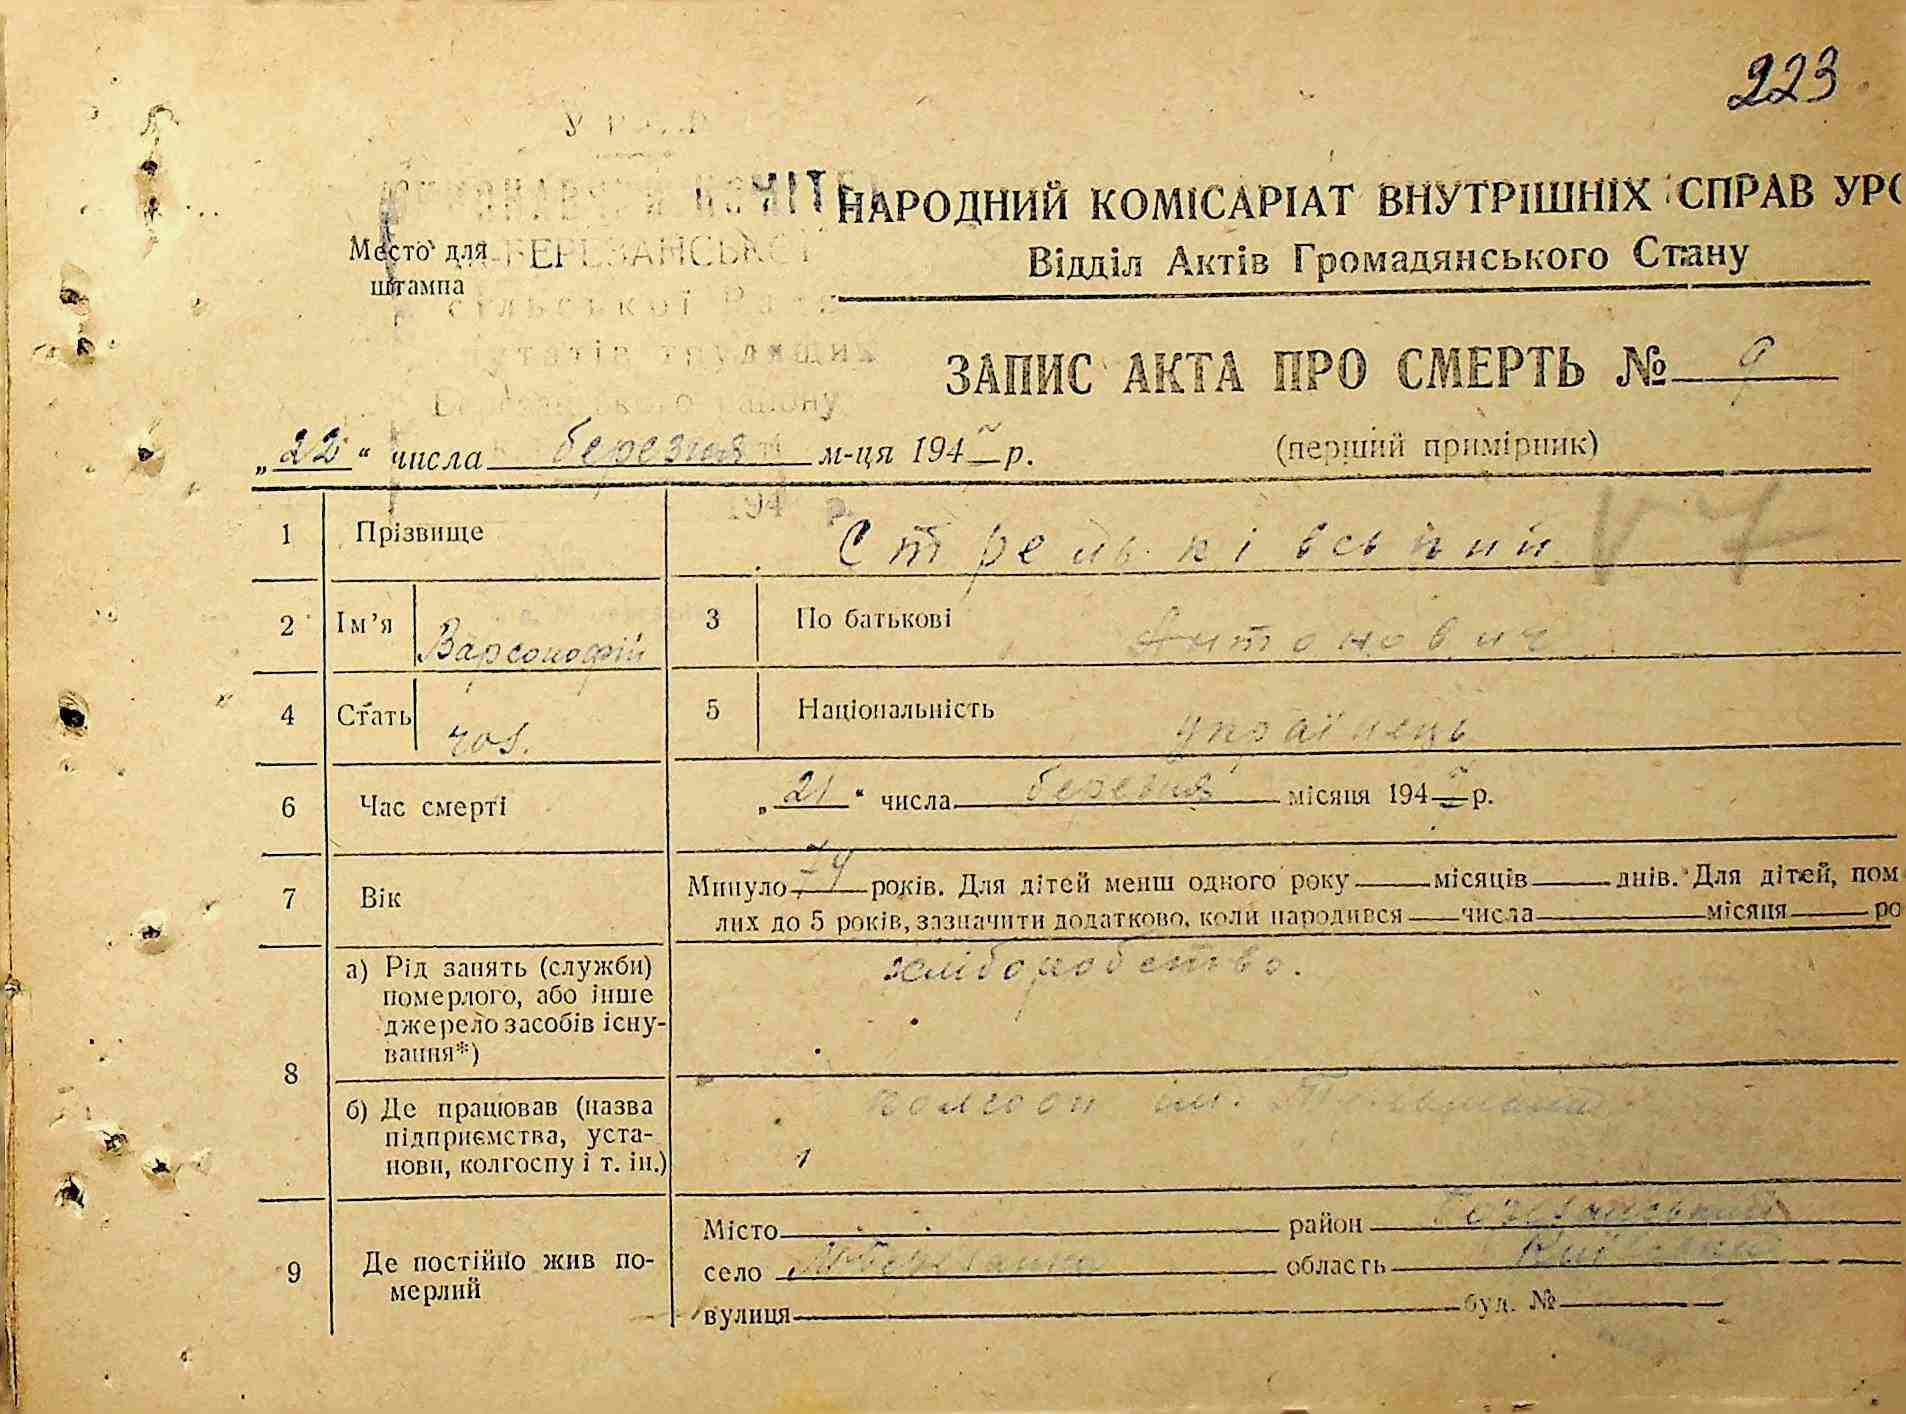 223
НАРОДНИЙ КОМІСАРІАТ ВНУТРІШНІХ СПРАВ УРС
Відділ Актів Громадянського Стану
Место для
штампа
БЕРЕЗАНСЬКОЇ
сільської Ради
депутатів трудящих
району
194 р.
ЗАПИС АКТА ПРО СМЕРТЬ № 9
„22“ числа березня м-ця 194 р.
(перший примірник)
1 Прізвище Стрельківський
2 Ім'я Варсонофій 3 По батькові Антонович
4 Стать чол. 5 Національність українець
6 Час смерті „21“ числа березня місяця 194 р.
7 Вік Минуло 74 років. Для дітей менш одного року місяців днів. Для дітей, пом
лих до 5 років, зазначити додатково, коли народився числа місяця ро
8 а) Рід занять (служби)
померлого, або інше
джерело засобів існу-
вання*)
хліборобство.
б) Де працював (назва
підприємства, уста-
нови, колгоспу і т. ін.)
колгосп ім. Тельмана
9 Де постійно жив по-
мерлий
Місто район Березанський
село М-Березанка область Київська
вулиця буд. №